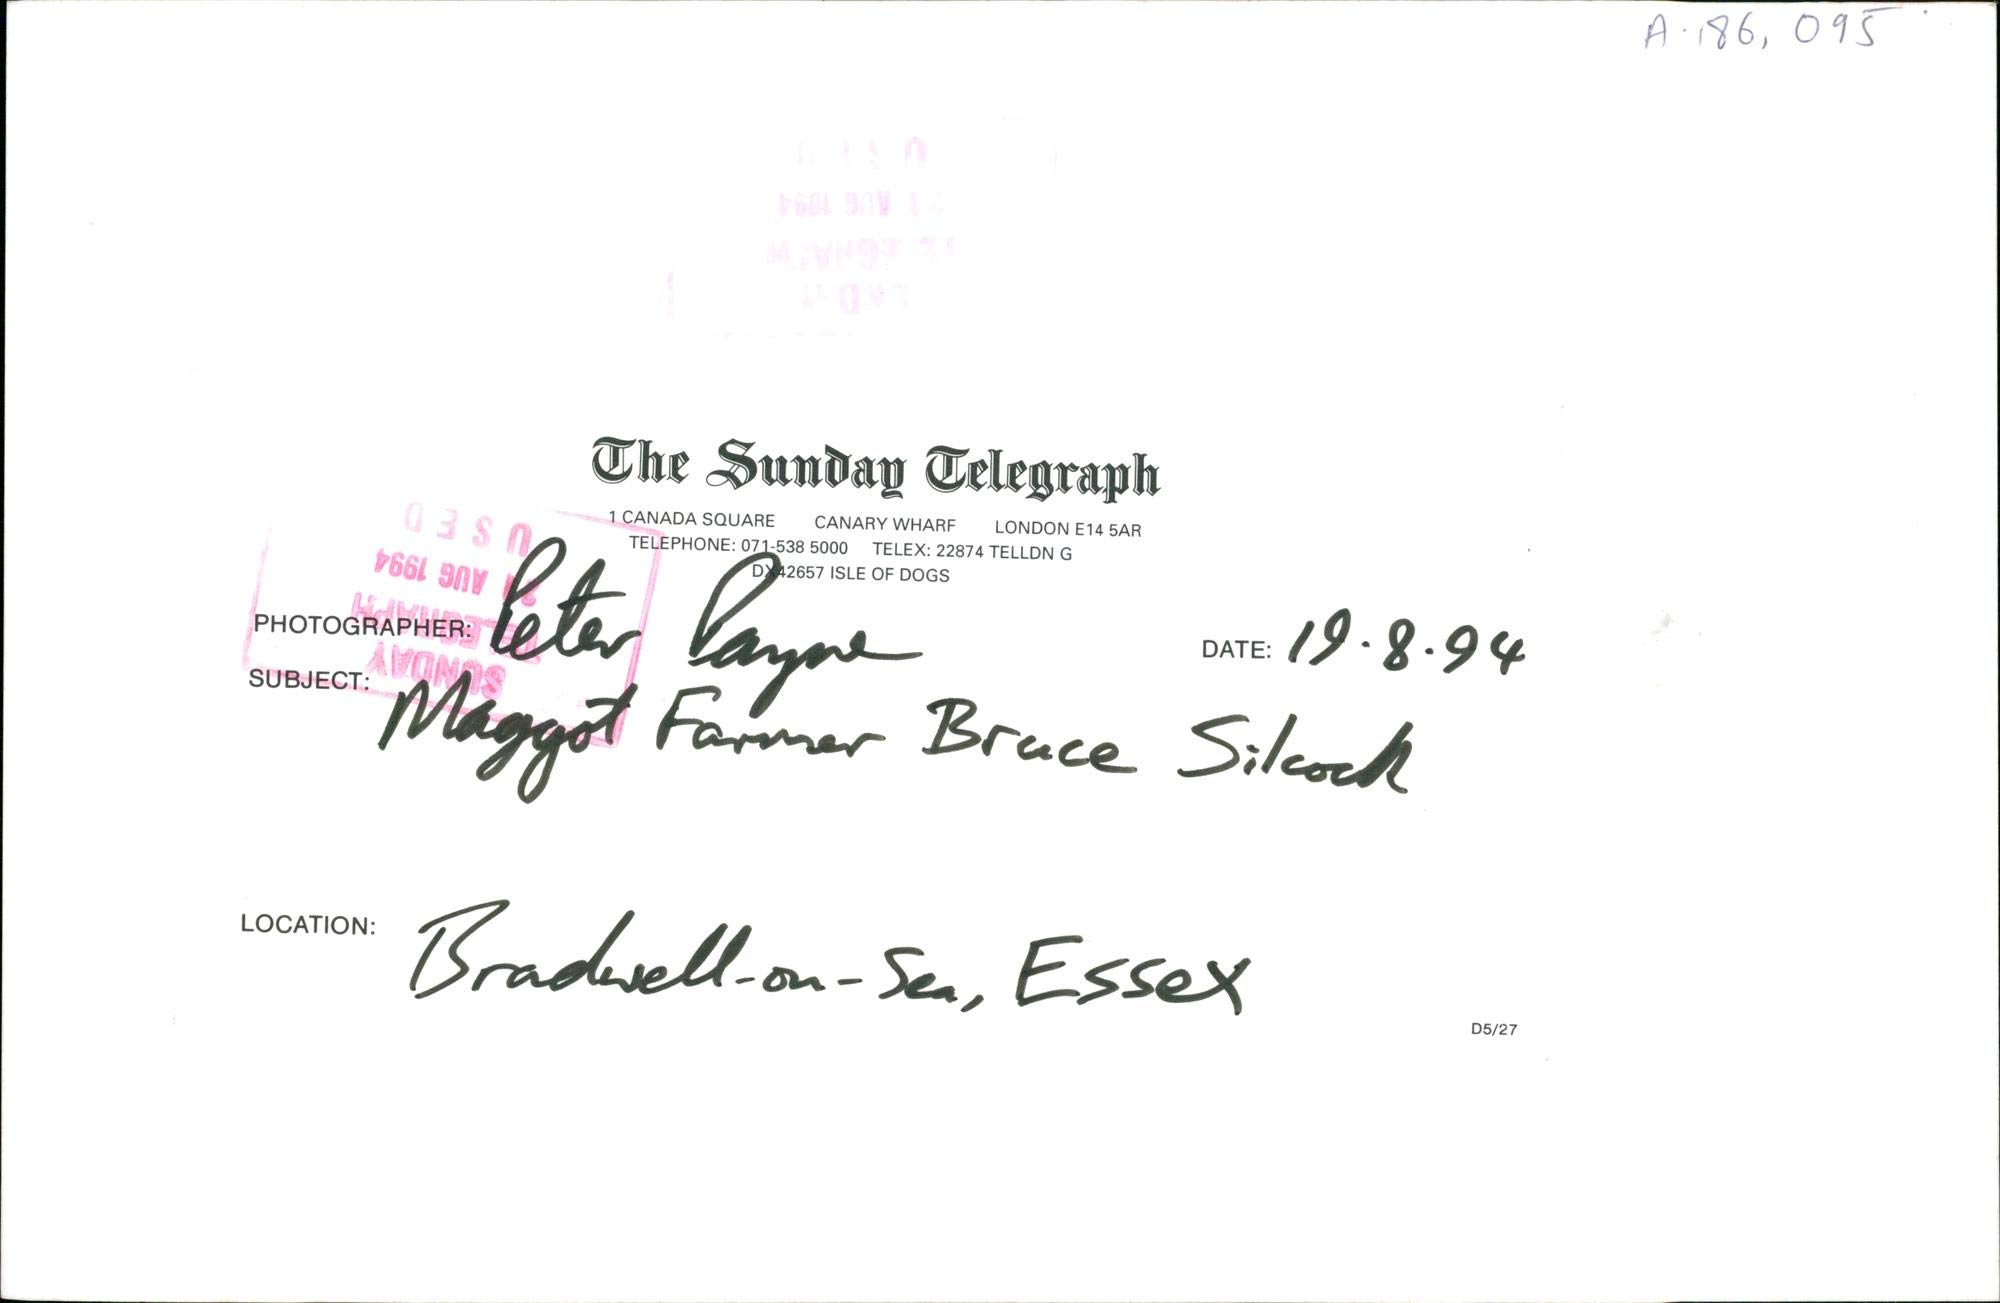 A.186, 095
The Sunday Telegraph
1 CANADA SQUARE CANARY WHARF LONDON E14 5AR
TELEPHONE: 071-538 5000 TELEX: 22874 TELLDN G
DX42657 ISLE OF DOGS
PHOTOGRAPHER: Peter Payne
DATE: 19.8.94
SUBJECT: Maggot Farmer Bruce Silcock
LOCATION: Bradwell-on-Sea, Essex
D5/27
SUNDAY
TELEGRAPH
21 AUG 1994
USED
TELEGRAPH
21 AUG 1994
USED